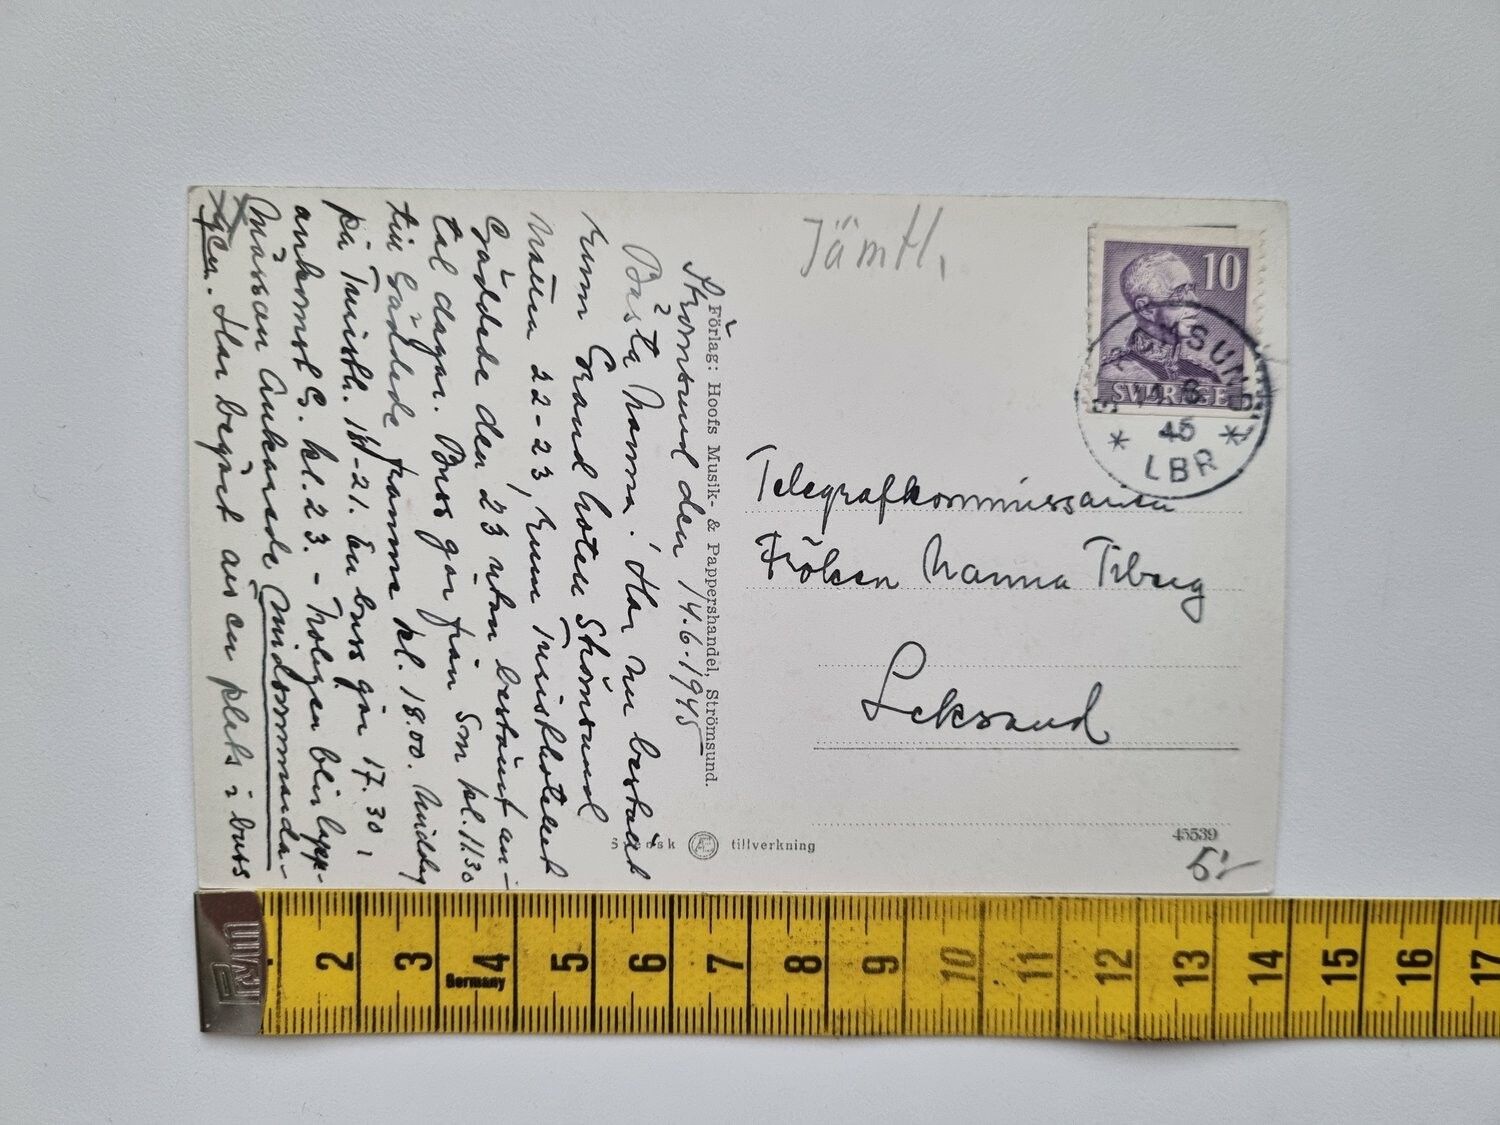 Strömsund den 14.6.1945
Bästa Nanna! Har nu beställt
rum Grand hotell Strömsund
natten 22-23, rum Turisthotellet
Gäddede den 23 utan bestämt an-
tal dagar. Buss går från Smd kl. 11.30
till Gäddede framme kl. 18.00. Middag
på Turisth. 18-21. En buss går 17.30,
ankomst G. kl. 23. - Troligen blir
Mässan
Har begärt en plats i buss
Förlag: Hoofs Musik- & Pappershandel, Strömsund.
Svensk tillverkning
Jämtl.
10
SVERIGE
STRÖMSUND
14 6
45
LBR
Telegrafkommissarien
Fröken Nanna Tiberg
Leksand
45539
5:-
2 3 4 5 6 7 8 9 10 11 12 13 14 15 16 17
Germany